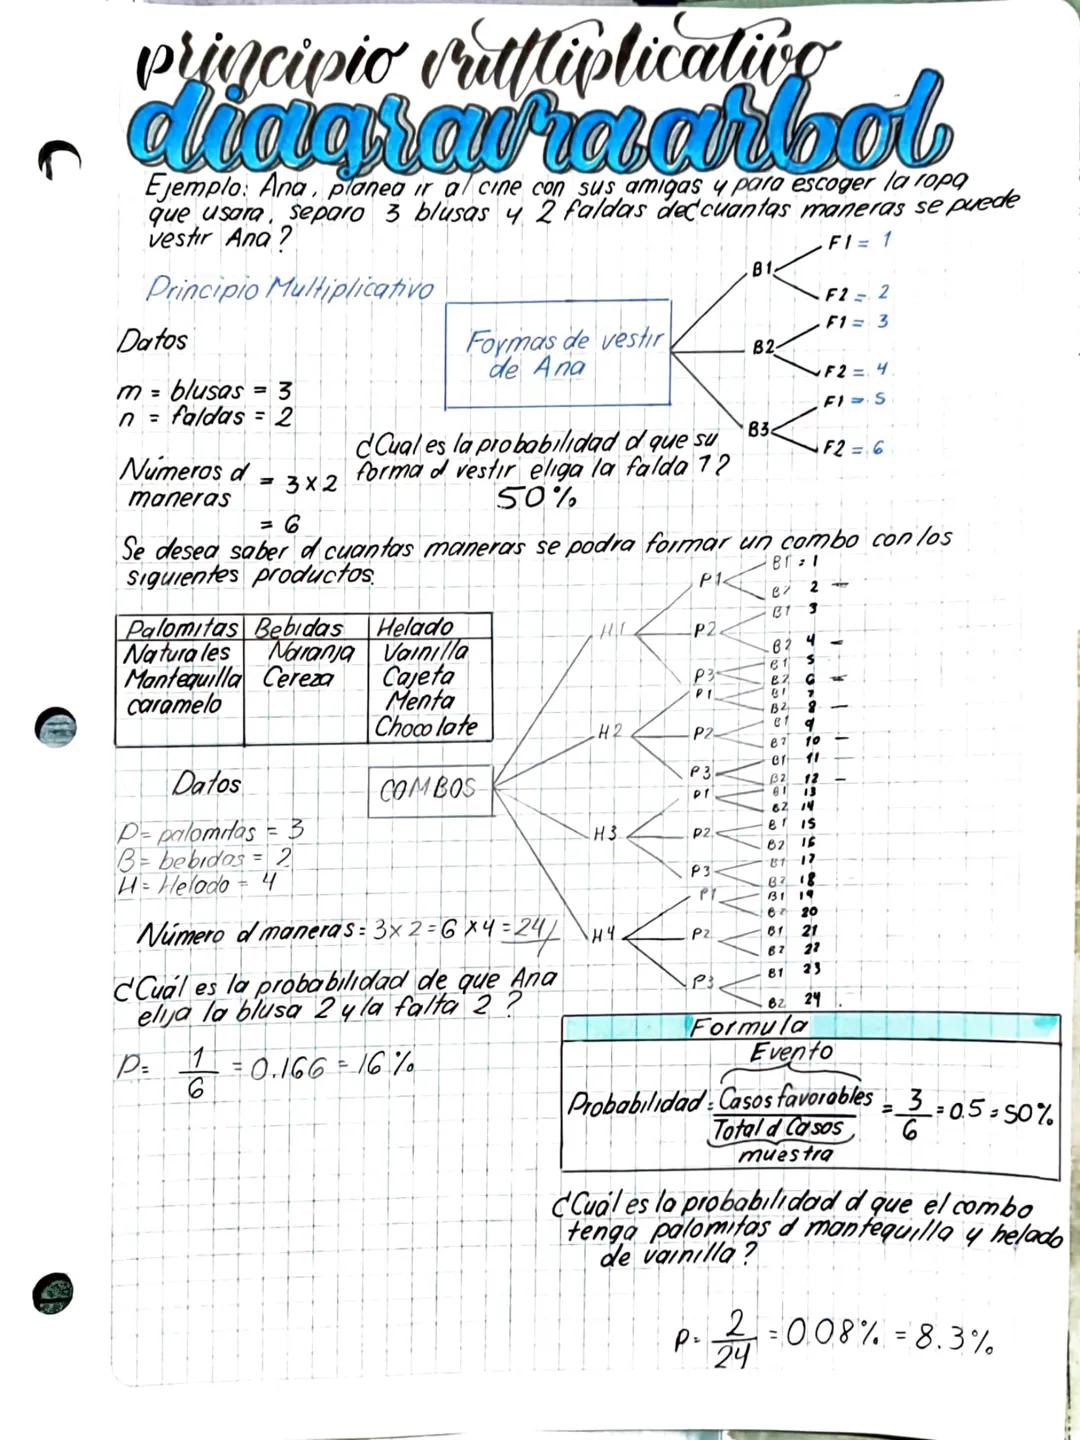 principio multiplicativo
diagrama arbol
Ejemplo: Ana, planea ir al cine con sus amigas y para escoger la ropa
que usara, separo 3 blusas y 2 faldas de ¿cuantas maneras se puede
vestir Ana?
Principio Multiplicativo
Datos
m = blusas = 3
n = faldas = 2
Números d maneras = 3 x 2
= 6
Formas de vestir
de Ana
B1
F1 = 1
F2 = 2
B2
F1 = 3
F2 = 4
B3
F1 = 5
F2 = 6
¿Cual es la probabilidad d que su
forma d vestir eliga la falda 1?
50%
Se desea saber d cuantas maneras se podra formar un combo con los
siguientes productos.
Palomitas Bebidas Helado
Naturales Naranja Vainilla
Mantequilla Cereza Cajeta
caramelo Menta
Chocolate
Datos
P= palomitas = 3
B= bebidas = 2
H= Helado = 4
COMBOS
H1
P1
B1 = 1
B2 2 –
P2
B1 3
B2 4 –
P3
B1 5
B2 6 –
H2
P1
B1 7
B2 8 –
P2
B1 9
B2 10 –
P3
B1 11
B2 12 –
H3
P1
B1 13
B2 14
P2
B1 15
B2 16
P3
B1 17
B2 18
H4
P1
B1 19
B2 20
P2
B1 21
B2 22
P3
B1 23
B2 24
Número d maneras = 3 x 2 = 6 x 4 = 24/
¿Cuál es la probabilidad de que Ana
elija la blusa 2 y la falta 2?
P= 1/6 = 0.166 = 16%
Formula
Evento
Probabilidad = Casos favorables / Total d Casos = 3/6 = 0.5 = 50%
muestra
¿Cuál es la probabilidad d que el combo
tenga palomitas d mantequilla y helado
de vainilla?
P= 2/24 = 0.08% = 8.3%